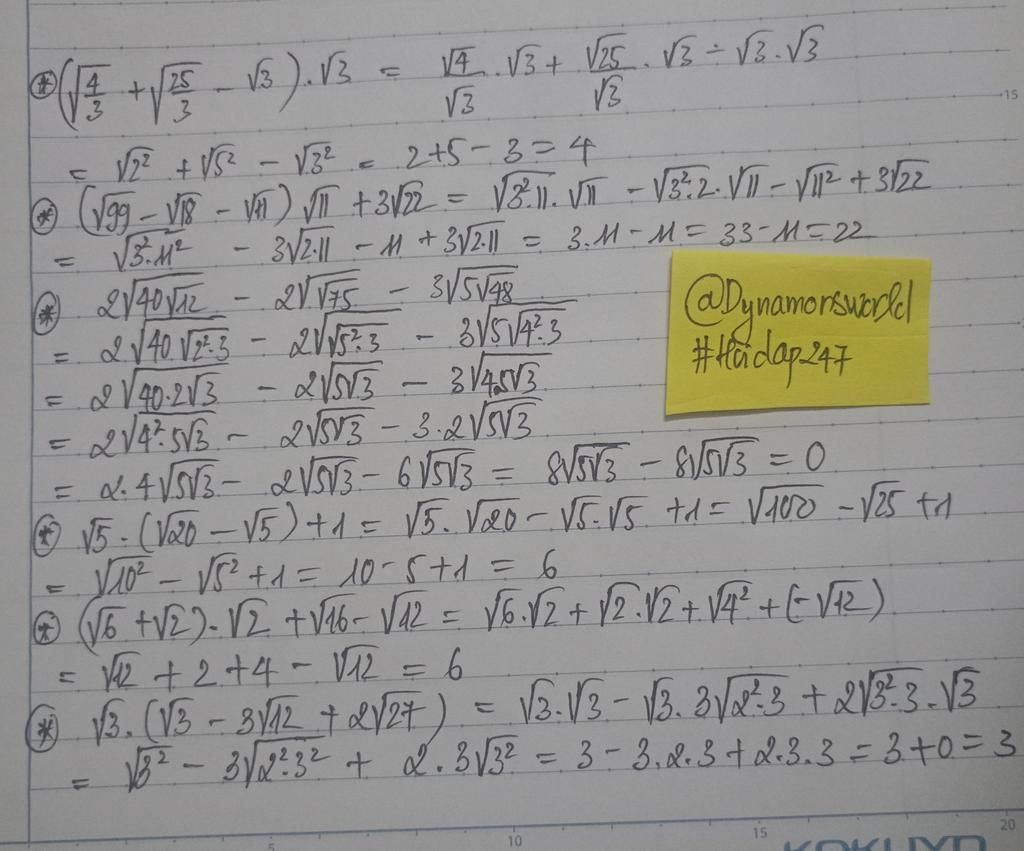 ⊛ (√(4/3) + √(25/3) - √3) . √3 = √4/√3 . √3 + √25/√3 . √3 ÷ √3 . √3
= √2² + √5² - √3² = 2+5-3 = 4
⊛ (√99 - √18 - √11) √11 + 3√22 = √(3².11) . √11 - √(3².2) . √11 - √11² + 3√22
= √(3².11²) - 3√(2.11) - 11 + 3√(2.11) = 3.11 - 11 = 33 - 11 = 22
⊛ 2√(40√12) - 2√(√75) - 3√(5√48)
= 2√(40.√(2².3)) - 2√(√(5².3)) - 3√(5√(4².3))
= 2√(40.2√3) - 2√(5√3) - 3√(4.5√3)
= 2√(4².5√3) - 2√(5√3) - 3.2√(5√3)
= 2.4√(5√3) - 2√(5√3) - 6√(5√3) = 8√(5√3) - 8√(5√3) = 0
⊛ √5 . (√20 - √5) + 1 = √5 . √20 - √5 . √5 + 1 = √100 - √25 + 1
= √10² - √5² + 1 = 10 - 5 + 1 = 6
⊛ (√6 + √2) . √2 + √16 - √12 = √6 . √2 + √2 . √2 + √4² + (-√12)
= √12 + 2 + 4 - √12 = 6
⊛ √3 . (√3 - 3√12 + 2√27) = √3 . √3 - √3 . 3√(2².3) + 2√(3².3) . √3
= √3² - 3√(2².3²) + 2.3√3² = 3 - 3.2.3 + 2.3.3 = 3+0 = 3
@Dynamorsworld
#Hỏidap247
15
5 10 15 20
KOKUYO